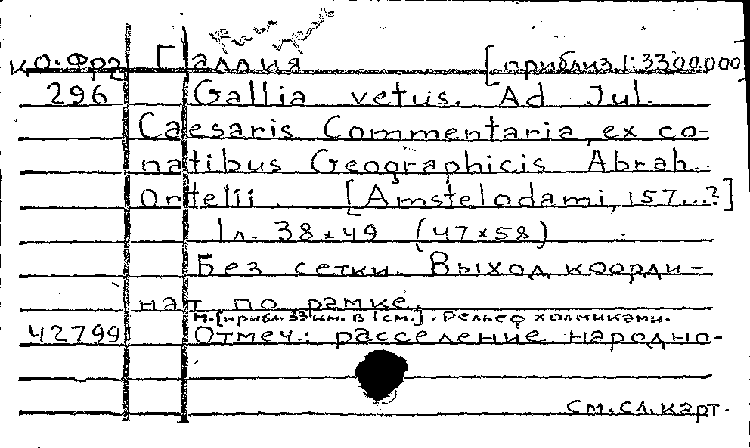 К.О.Фрг Галлия [приблиз. 1:3300000]
296 Gallia vetus. Ad Jul.
Caesaris Commentaria, ex co-
natibus Geographicis Abrah.
Ortelii. [Amstelodami, 157...?]
1 л. 38x49 (47x58)
Без сетки. Выход коорди-
нат по рамке.
М. [прибл. 33 км. в 1 см.]. Рельеф холмиками.
42799 Отмеч.: расселение народно-
см. сл. карт.